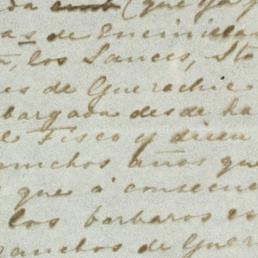 da (que ya p
as de Encinillas
, los Sauces, Sto
es de Guerachic
bargada desde ha
el Fisco y dicen
muchos años que
que á consecue
los barbaros es
ranchos de Guer